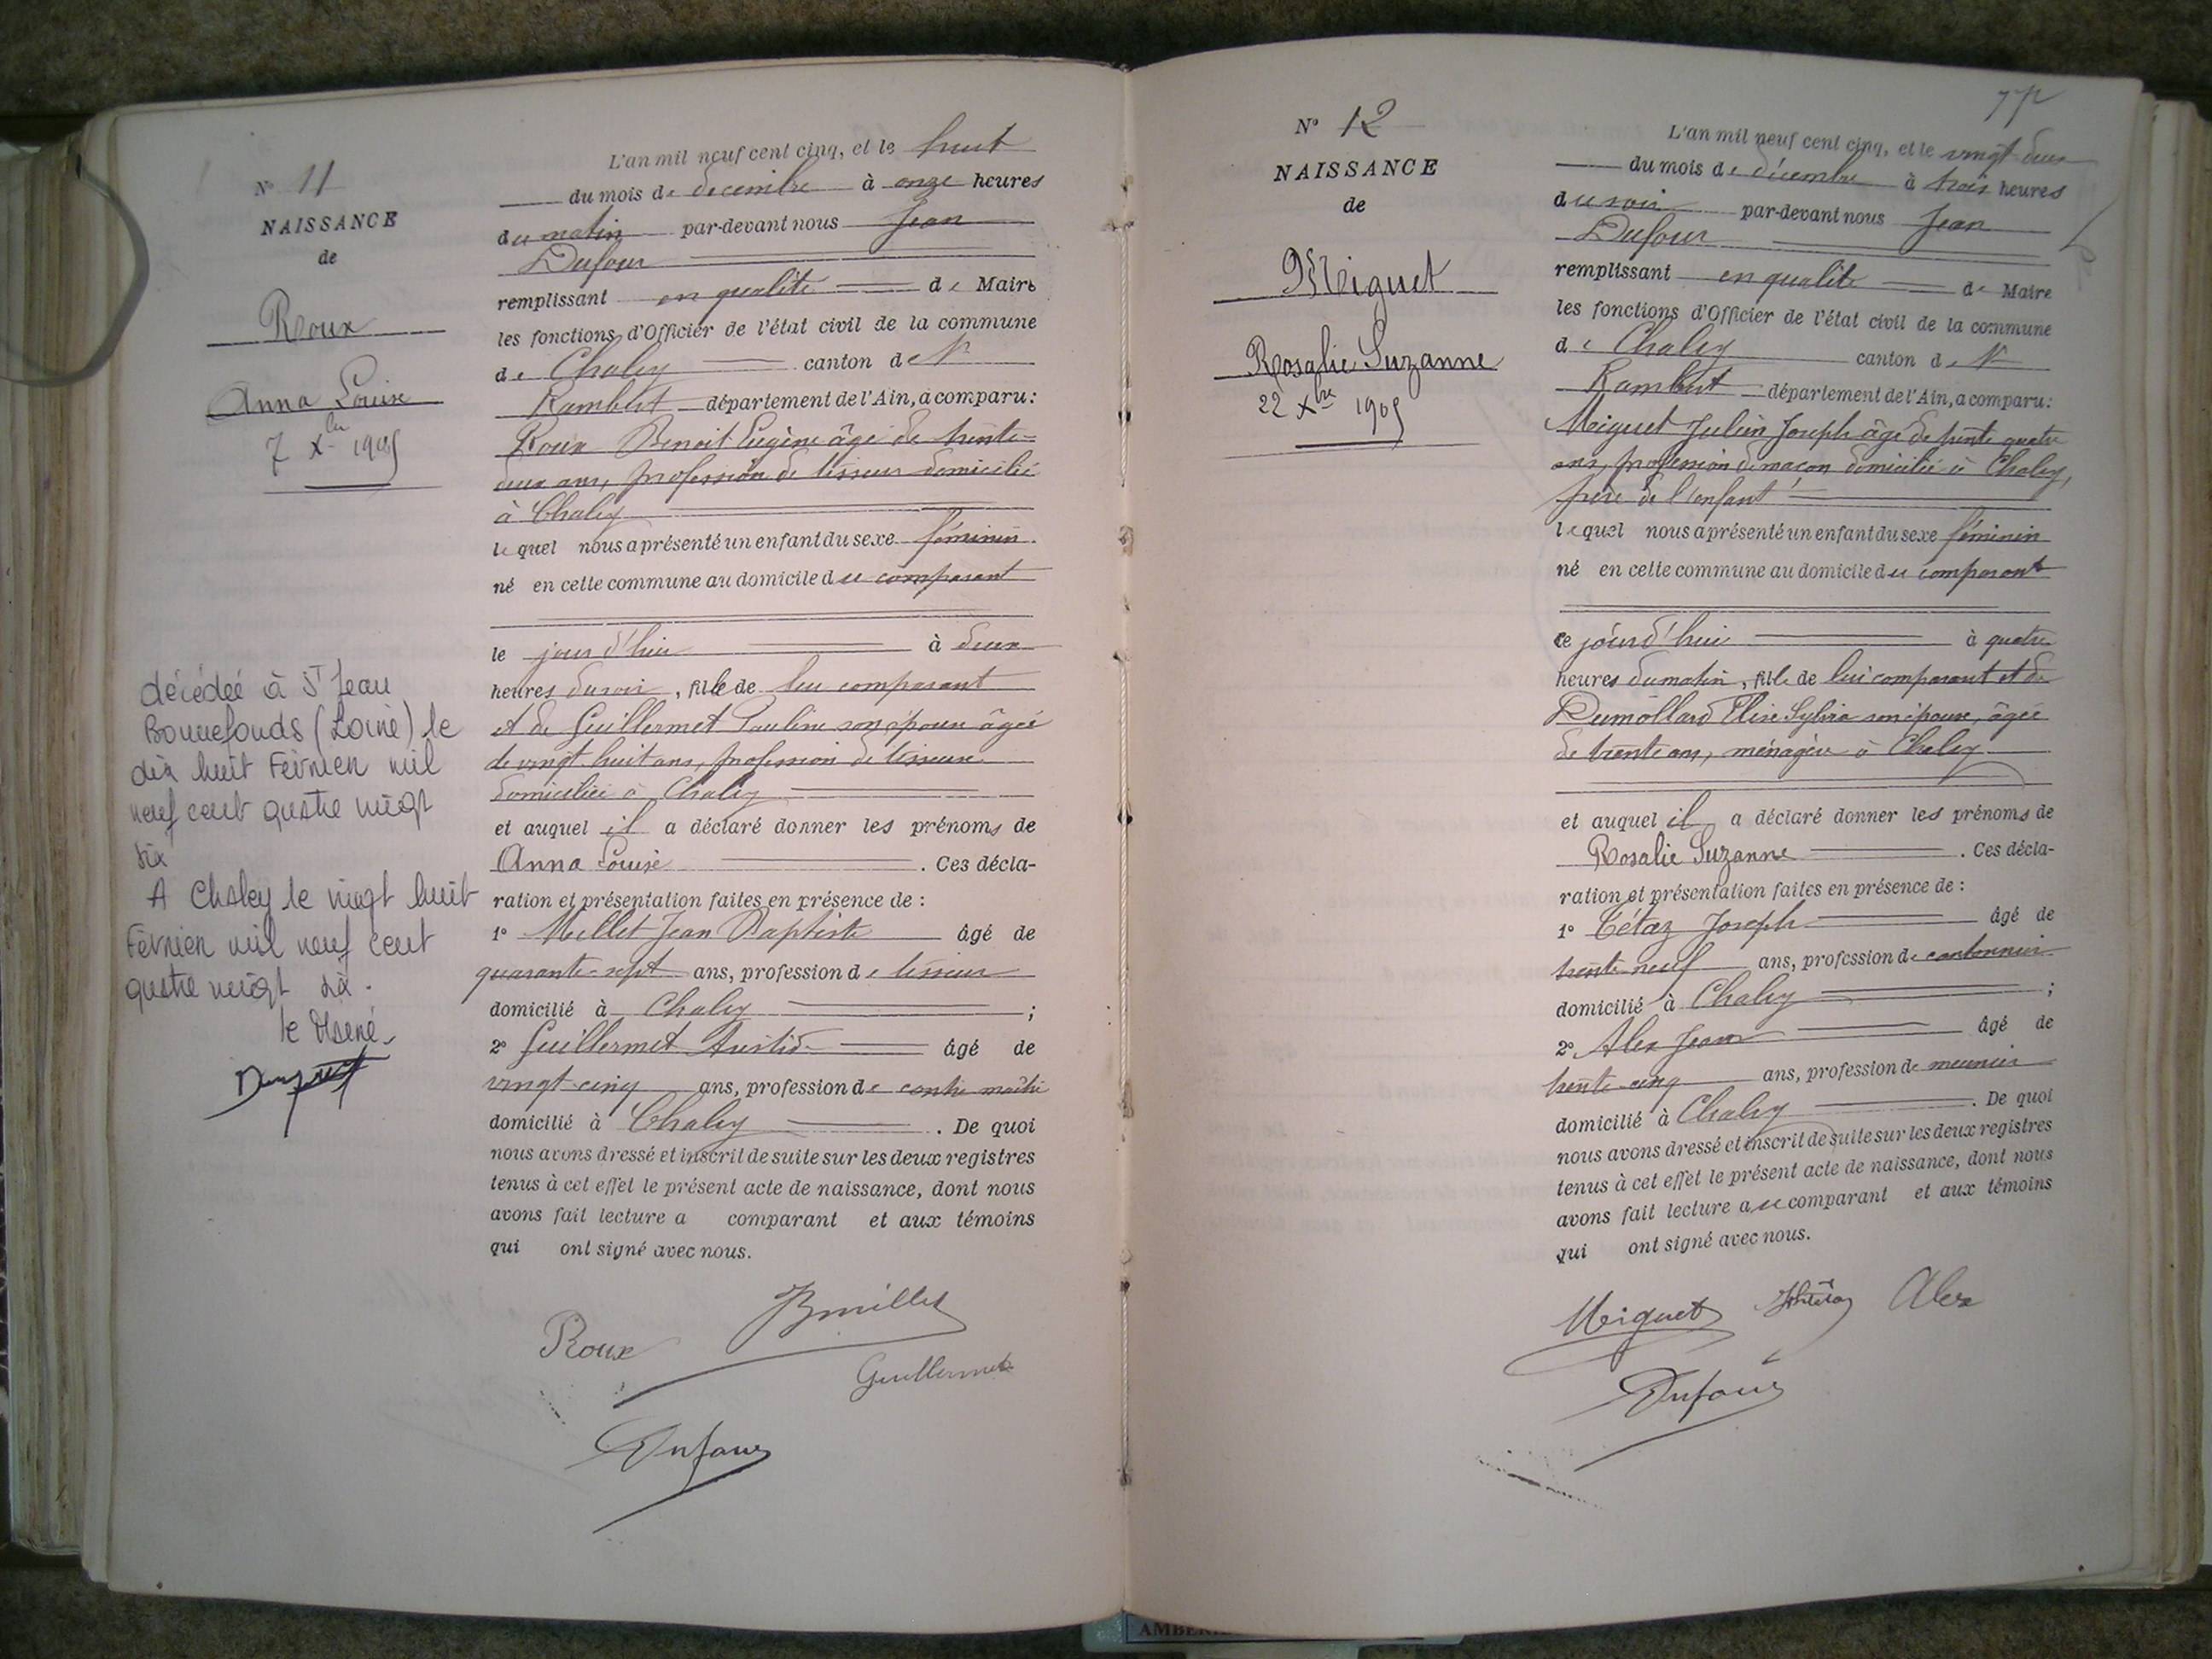 N° 11
NAISSANCE
de
Roux
Anna Louise
7 Xbre 1905
décédée à St Jean
Bonnefonds (Loire) le
dix huit Février mil
neuf cent quatre vingt
six
A Chaley le vingt huit
Février mil neuf cent
quatre vingt six.
L'an mil neuf cent cinq, et le huit
du mois de décembre à onze heures
du matin par-devant nous Jean
Dufour
remplissant en qualité de Maire
les fonctions d'Officier de l'état civil de la commune
de Chaley canton de St
Rambert département de l'Ain, a comparu:
Roux Benoit Eugène âgé de trente-
deux ans, profession de tisseur domicilié
à Chaley
lequel nous a présenté un enfant du sexe féminin.
né en cette commune au domicile du comparant
le jour d'hier à deux
heures du soir, fille de lui comparant
et de Guillermet Pauline son épouse âgée
de vingt huit ans, profession de tisseuse
domiciliée à Chaley
et auquel il a déclaré donner les prénoms de
Anna Louise . Ces décla-
ration et présentation faites en présence de :
1° Millet Jean Baptiste âgé de
quarante-sept ans, profession de tisseur
domicilié à Chaley ;
2° Guillermet Aristide âgé de
vingt-cinq ans, profession de contre maître
domicilié à Chaley . De quoi
nous avons dressé et inscrit de suite sur les deux registres
tenus à cet effet le présent acte de naissance, dont nous
avons fait lecture a comparant et aux témoins
qui ont signé avec nous.
Roux
Guillermet
Dufour
N° 12
NAISSANCE
de
Miguet
Rosalie Suzanne
22 Xbre 1905
L'an mil neuf cent cinq, et le vingt deux
du mois de décembre à trois heures
du soir par-devant nous Jean
Dufour
remplissant en qualité de Maire
les fonctions d'Officier de l'état civil de la commune
de Chaley canton de St
Rambert département de l'Ain, a comparu:
Miguet Julien Joseph âgé de trente quatre
ans, profession de maçon domicilié à Chaley,
père de l'enfant
lequel nous a présenté un enfant du sexe féminin
né en cette commune au domicile du comparant
ce jourd'hui à quatre
heures du matin, fille de lui comparant et de
Dumollard Elise Sylvia son épouse, âgée
de trente ans, ménagère à Chaley
et auquel il a déclaré donner les prénoms de
Rosalie Suzanne . Ces décla-
ration et présentation faites en présence de :
1° Tétaz Joseph âgé de
trente-neuf ans, profession de cantonnier
domicilié à Chaley ;
2° Alex Jean âgé de
trente-cinq ans, profession de meunier
domicilié à Chaley . De quoi
nous avons dressé et inscrit de suite sur les deux registres
tenus à cet effet le présent acte de naissance, dont nous
avons fait lecture au comparant et aux témoins
qui ont signé avec nous.
Miguet Alex
Dufour